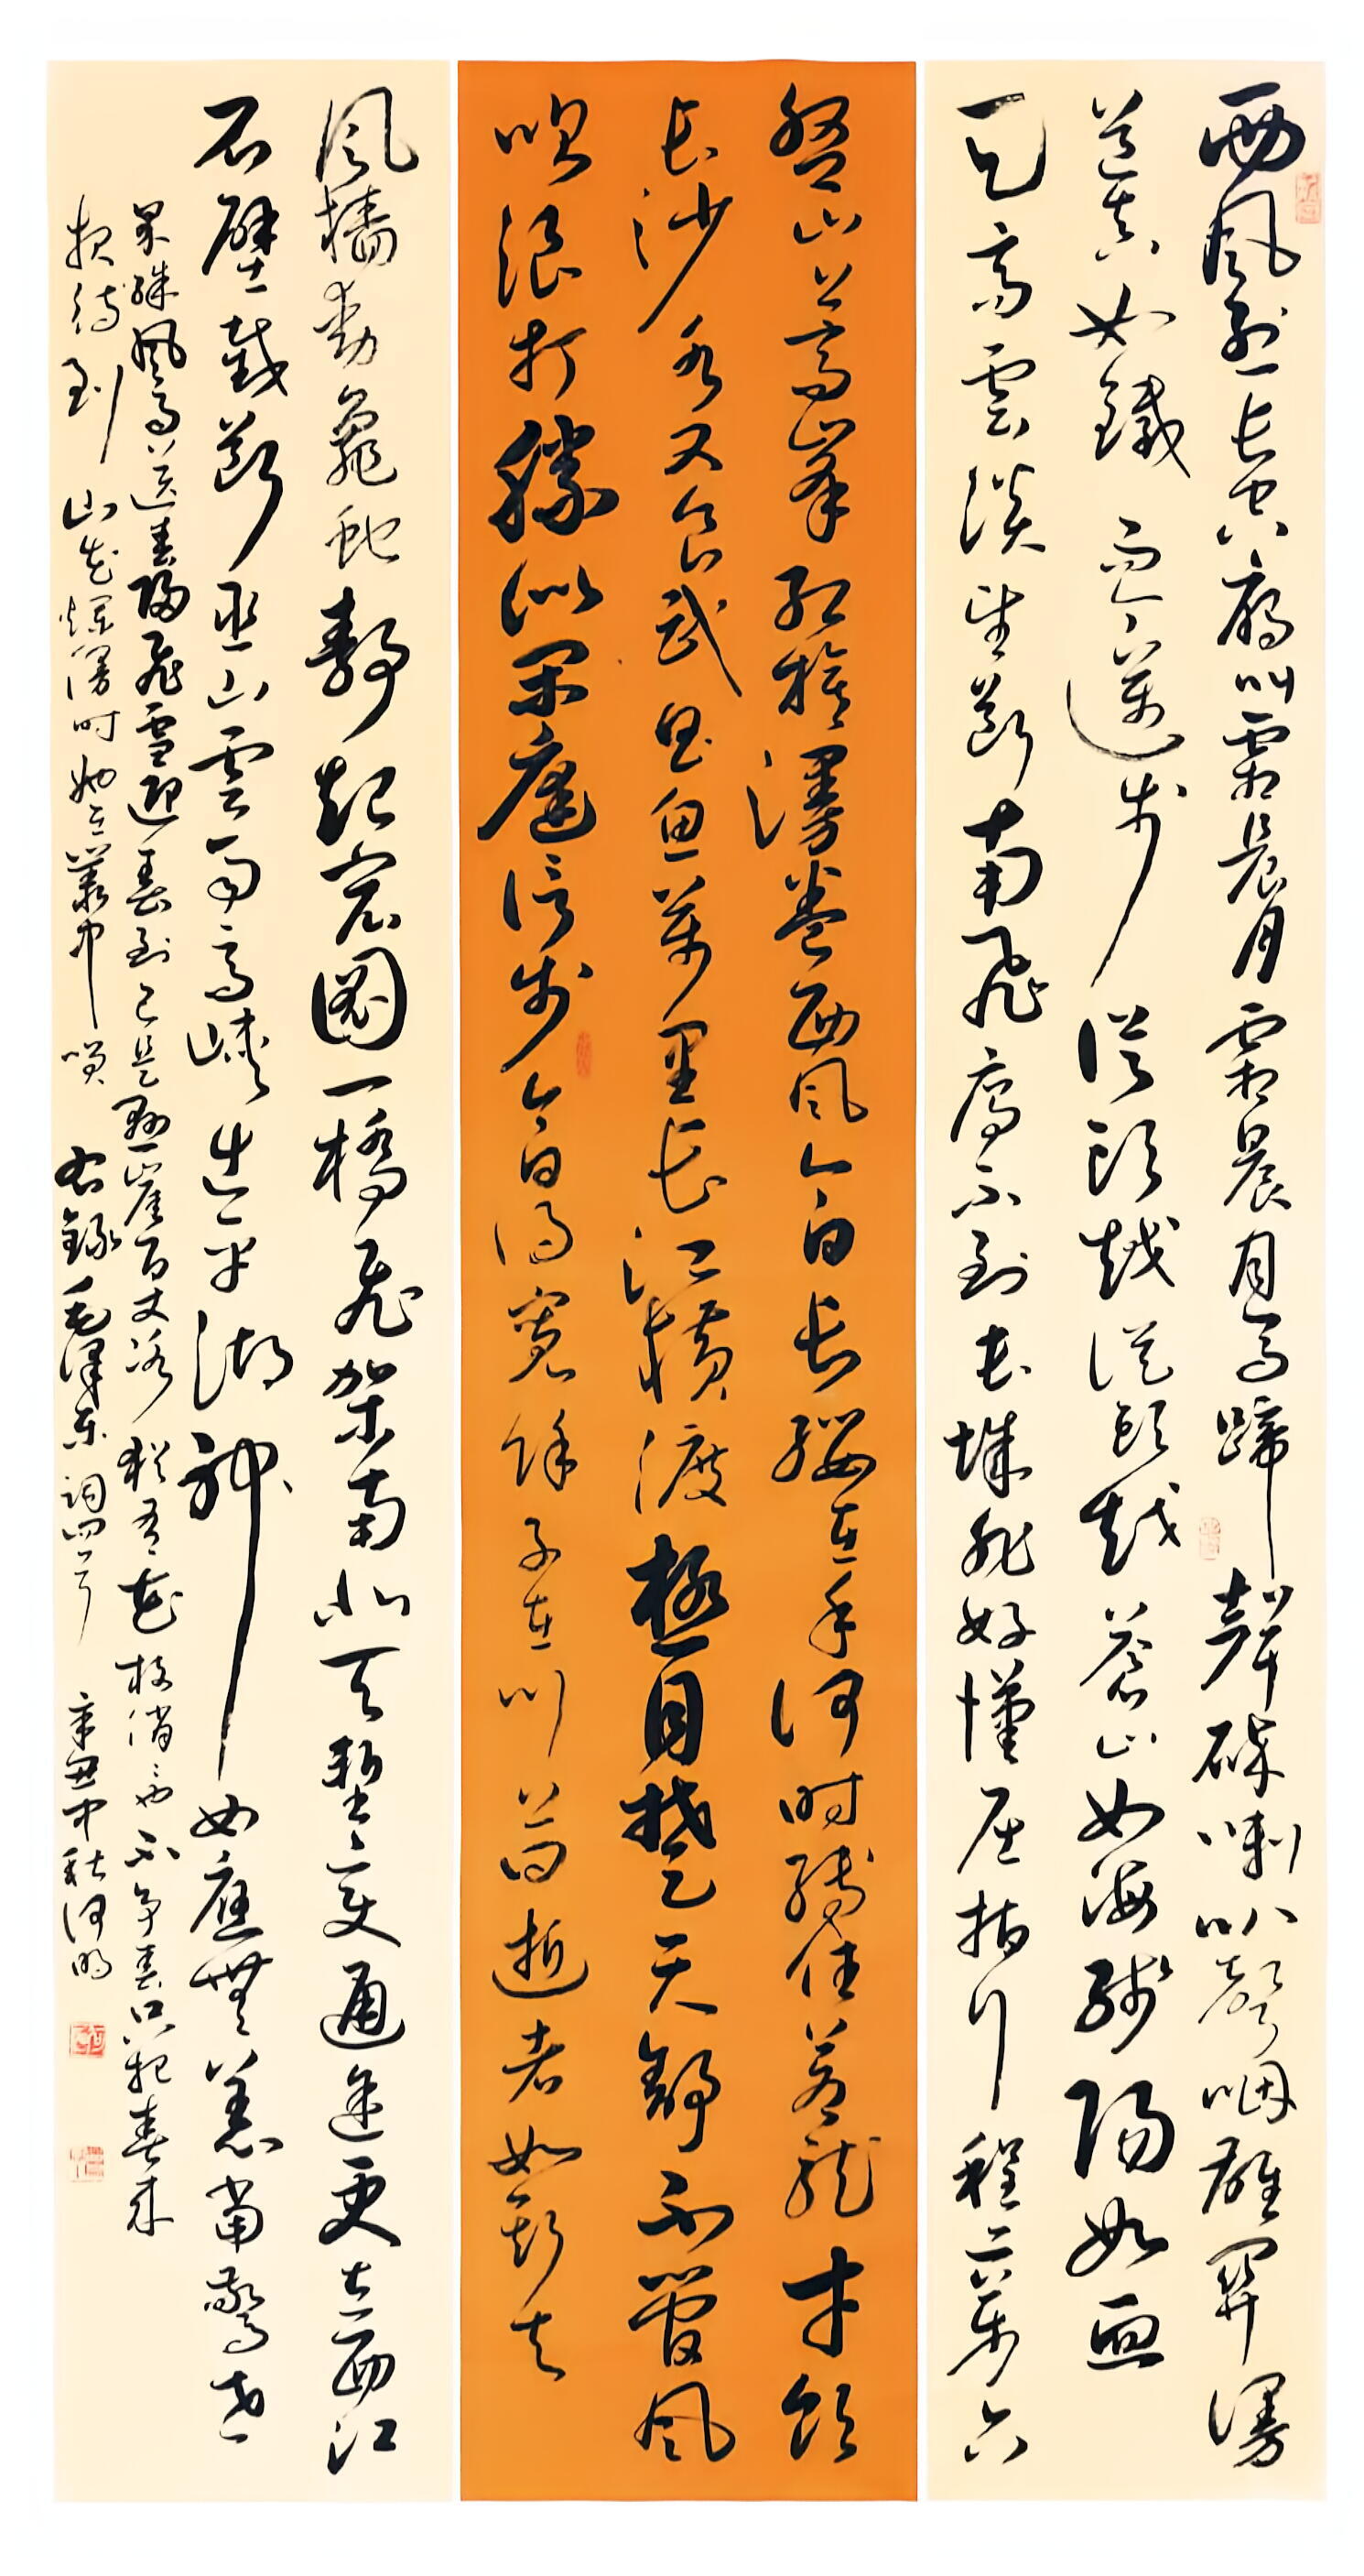 西風烈長空雁叫霜晨月霜晨月馬蹄聲碎喇叭聲咽雄関漫
道真如鐵而今邁步從頭越從頭越蒼山如海殘陽如血
天高雲淡望斷南飛雁不到長城非好漢屈指行程二萬六
盤山上高峯紅旗漫卷西風今日長纓在手何時縛住蒼龍才飲
長沙水又食武昌魚萬里長江橫渡極目楚天舒不管風
吹浪打勝似閑庭信步今日得寬餘子在川上曰逝者如斯夫
風檣動龜蛇靜起宏圖一橋飛架南北天塹變通途更立西江
石壁截斷巫山雲雨高峽出平湖神女應無恙當驚世
界殊風雨送春歸飛雪迎春到已是懸崖百丈冰猶有花枝俏俏也不爭春只把春來
報待到山花爛漫時她在叢中笑右錄毛澤東詞四首辛丑中秋何明